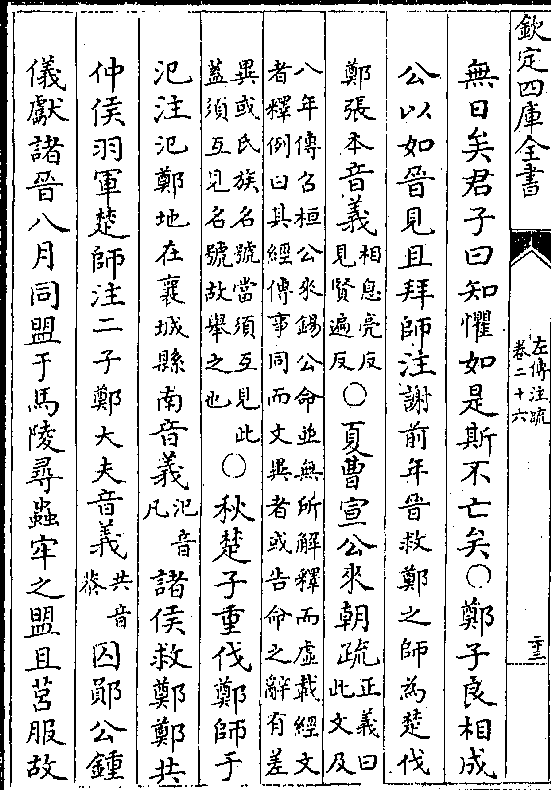 欽定四庫全書
左傳注疏
卷二十六
二十三
無日矣君子曰知懼如是斯不亡矣○鄭子良相成
公以如晉見且拜師注謝前年晉救鄭之師為楚伐
鄭張本音義相息亮反見賢遍反○夏曹宣公來朝疏正義曰此文及
八年傳召桓公來錫公命並無所解釋而虛載經文
者釋例曰其經傳事同而文異者或告命之辭有差
異或氏族名號當須互見此蓋須互見名號故舉之也○秋楚子重伐鄭師于
氾注氾鄭地在襄城縣南音義氾音凡諸侯救鄭鄭共
仲侯羽軍楚師注二子鄭大夫音義共音恭囚鄖公鍾
儀獻諸晉八月同盟于馬陵尋蟲牢之盟且莒服故